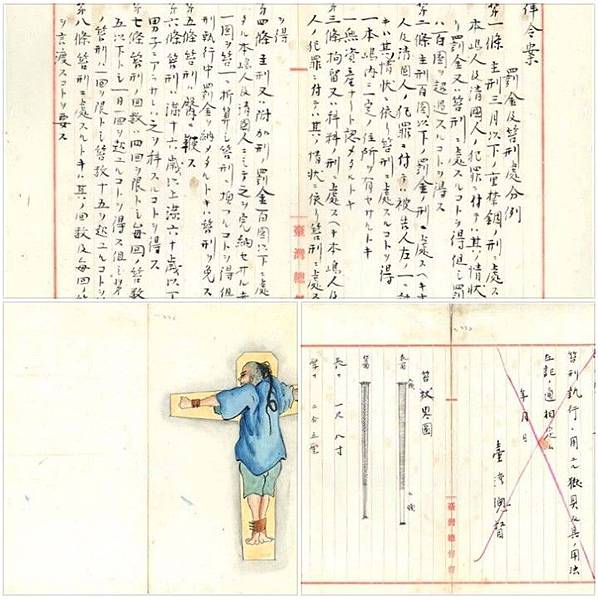 律令案
罰金及笞刑處分例
第一條 主刑三月以下ノ重禁錮ノ刑ニ處ス
本島人及清國人ノ犯罪ニ付テハ其ノ情状
リ罰金又ハ笞刑ニ處スルコトヲ得但シ罰
ハ百圓ヲ超過スルコトヲ得ス
第二條 主刑百圓以下ノ罰金ノ刑ニ處スヘキ
人及清國人ノ犯罪ニ付テハ被告人左ノ一ニ
キハ其ノ情状ニ依リ笞刑ニ處スルコトヲ得
一 本島内ニ一定ノ住所ヲ有セサルトキ
一 無資産ナリト認メタルトキ
第三條 拘留又ハ科料ノ刑ニ處スヘキ本島人及
人ノ犯罪ニ付テハ其ノ情状ニ依リ笞刑ニ處
臺灣總督
ヲ得
第四條 主刑又ハ附加刑ノ罰金百圓以下ニ處
タル本島人及清國人ニシテ之ヲ完納セサル
一圓ヲ笞一ニ折算シ笞刑ニ換フルコトヲ得但
刑執行中罰金ヲ納メタルトキハ笞刑ヲ免ス
第五條 笞刑ハ臀ヲ鞭ス
第六條 笞刑ハ滿十六歳以上滿六十歳以下
男子ニアラサレハ之ヲ科スルコトヲ得ス
第七條 笞刑ノ回数ハ四回ヲ限トシ毎回ノ笞数
五以下トシ一月一回ヲ超ユルコトヲ得ス但シ
ノ笞刑ハ一回ヲ限トシ笞数十五ヲ超ユルコトヲ
第八條 笞刑ニ處スルトキハ其ノ回数及毎回ノ笞
ヲ言渡スコトヲ要ス
笞刑執行ニ用ユル獄具及其ノ用法
左記ノ通相定ム
年月日
臺灣總督
臺灣總督府
笞杖略圖
表面
背面
長サ 一尺八寸